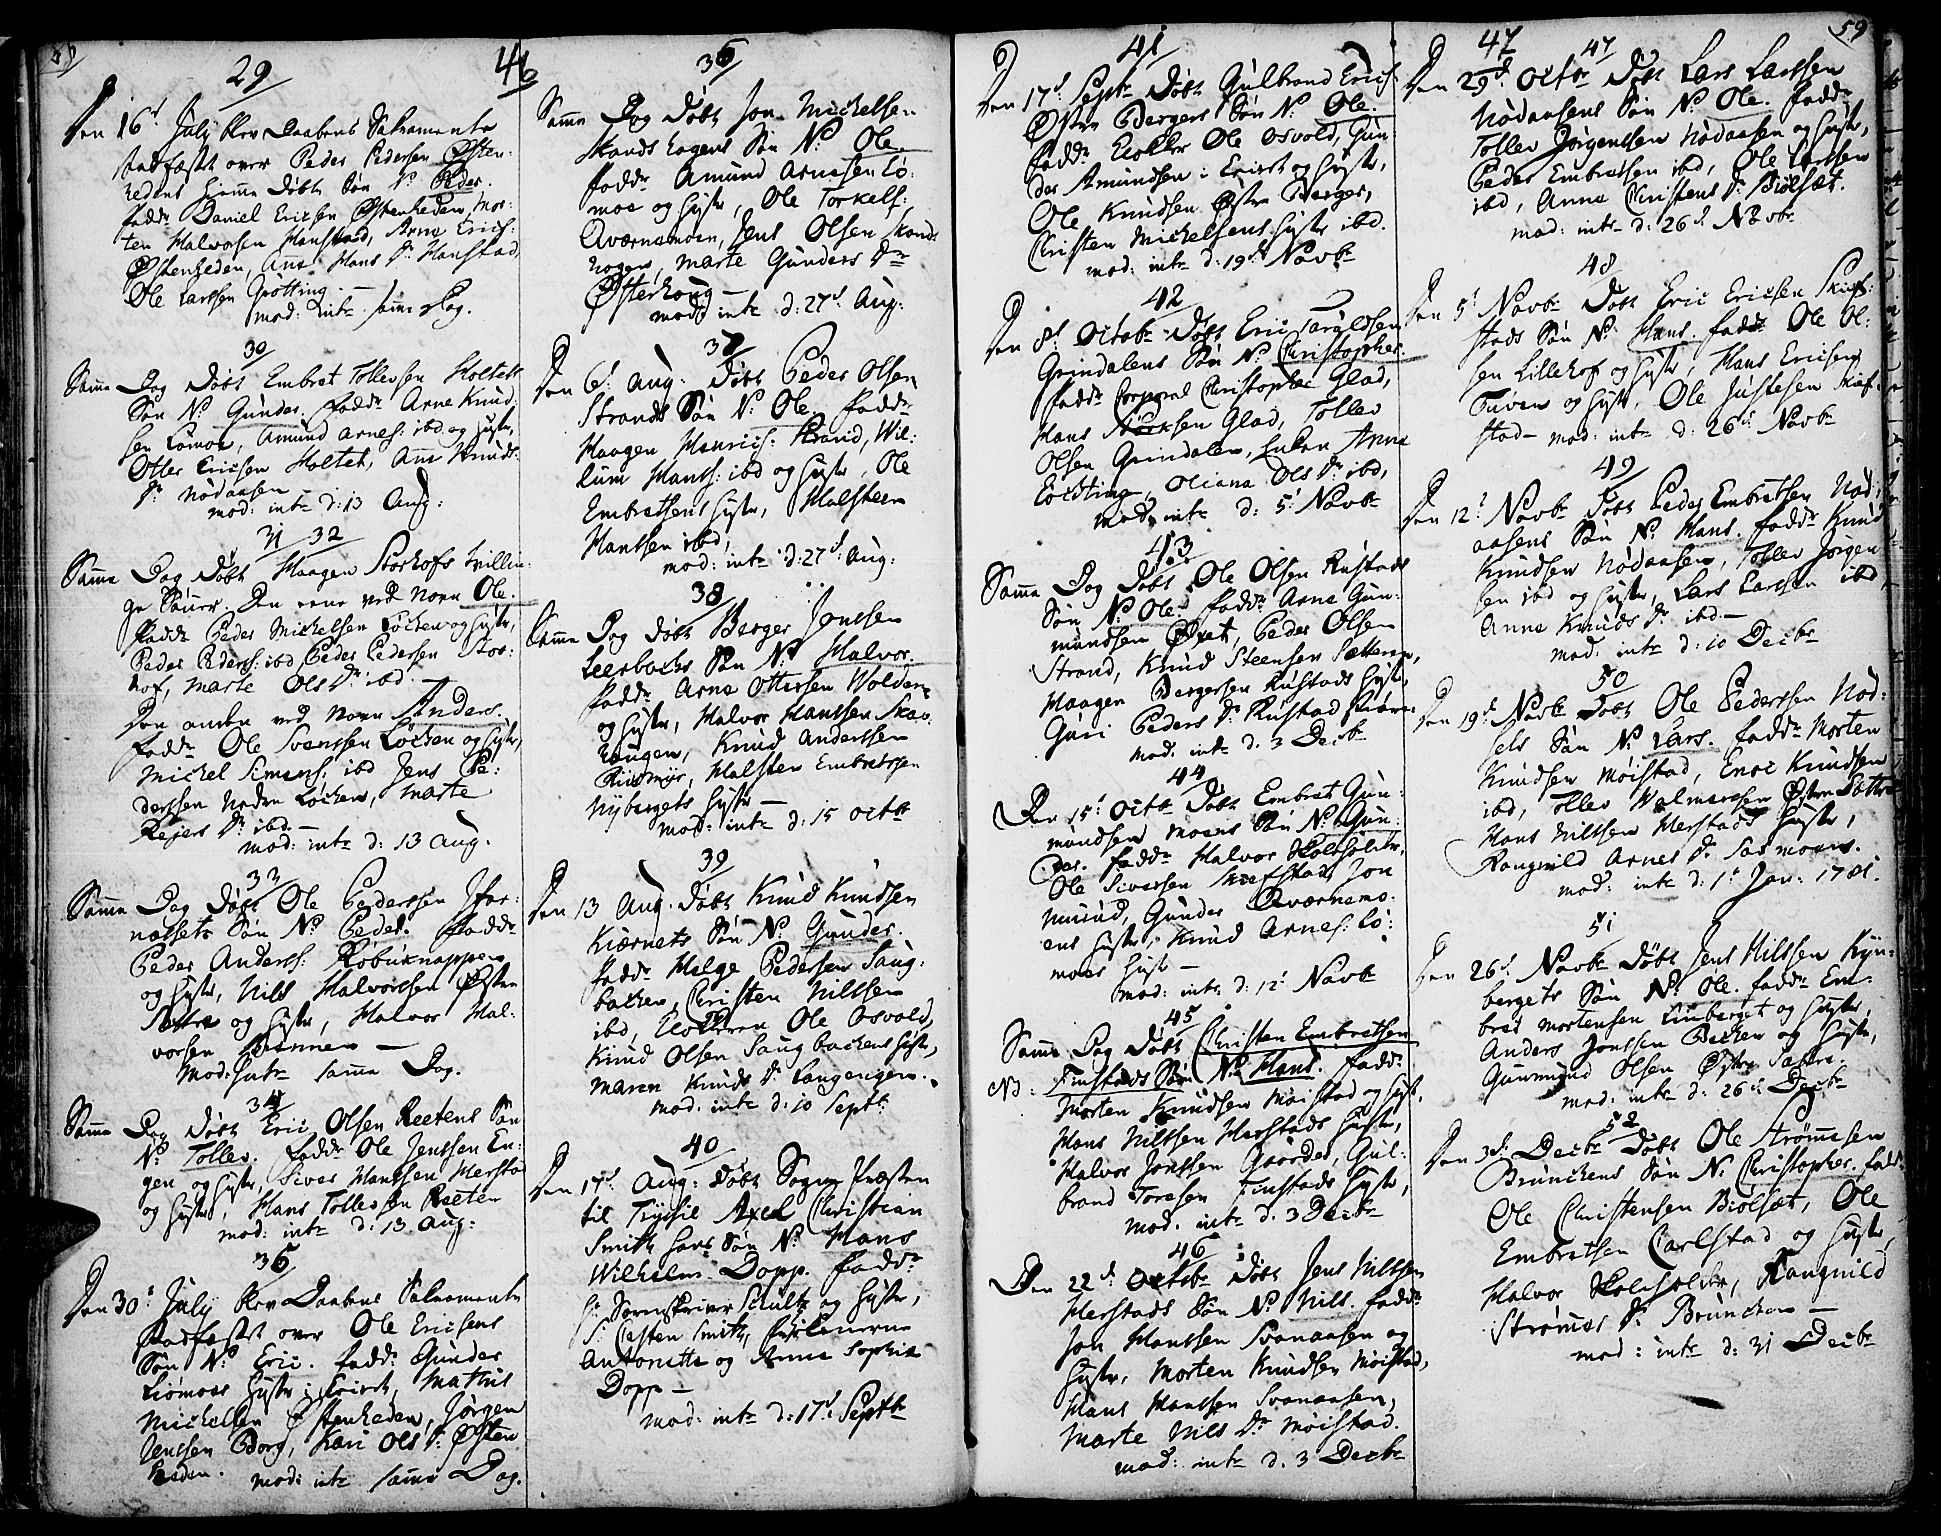 29
Den 16d July blev Daabens Sakramente
stadfæstet over Peder Pedersen Østen-
hedens hjemme døbt Søn N. Peder.
fadd: Daniel Ericsen Østenheden, Mor-
ten Halvorsen Hanstad, Arne Erics:
Østenheden, Ane Hans Dr Hanstad,
Ole Larssen Grøtting.
mod: intr. samme Dag.
30
Samme Dag døbt Embret Tollevsen Holtets
Søn N. Gunder. fadd: Arne Knud-
sen Lømoe, Amund Arnes: ibd og hustr,
Otter Ericsen Holtet, Ane Knuds
Dr Nødaasen
mod: intr d: 13 Aug:
31 32
Samme Dag døbt Haagen Storhofs tvillin-
ge Sønner. Den eene ved Navn Ole.
Fadd: Peder Michelsen Løcken og hustr,
Peder Peders: ibd Peder Pedersen Stor-
hof, Marte Ols Dr ibd.
Den anden ved Navn Anders.
Fadd: Ole Svenssen Løcken og hustr,
Michel Simens: ibd Jens Pe-
derssen Nedre Løcken, Marte
Rejers Dr ibd.
mod: intr d: 13 Aug.
33
Samme Dag døbt Ole Pederssen
Søn N. Peder. Fadd:
Peder Anderss: Røbuknappen
og hustr, Nils Halvorssen Østre
Sættre og hustr, Halvor Hal-
vorsen Brennen
Mod: Intr samme Dag.
34
Samme Dag døbt Eric Olsen Reetens Søn
N. Tollev. Fadd: Ole Jenssen En-
gen og hustr, Siver Hanssen Merstad
og hustr, Hans Tollevsen Reeten
mod: intr d: 13 Aug:
35
Den 30d July blev Daabens Sakramente
stadfæstet over Ole Ericsens
Søn N. Eric. fadd: Gunder
Liømoes hustr i Elvert, Mathis
Michelsen Østenheden, Jørgen
Jenssen Borg, Kari Ols Dr Østen-
heden. mod: intr samme Dag.
36
Samme Dag døbt Jon Mickelsen
Skands Hagens Søn N. Ole.
fadd: Amund Arnesen Lø-
moe og hustr, Ole Torkels:
Qværnemoen, Jens Olsen Skands
hagen, Marte Gunders Dr
Østerhoug
mod: intr d: 27d Aug:
37
Den 6d Aug: døbt Peder Olsen
Strands Søn N. Ole. fadd:
Haagen Henrics: Strand, Wil-
lum Hanss: ibd og hustr Ole
Embretsens hustr, Halsteen
Hanssen ibd,
mod: intr d: 27d Aug:
38
Samme Dag døbt Berger Jenssen
Leerbachs Søn N. Halvor.
fadd: Arne Ottersen Wolden
og hustr, Halvor Hanssen Skav
haugen, Knud Anderssen
Riismyr, Halsten Embretsen
Nybergets hustr
mod: intr d: 15 octr
39
Den 13 Aug. døbt Knud Knudsen
Kiærnets Søn N. Gunder.
fadd: Helge Pedersen Saug-
backen, Christen Nilssen
ibd, Klokkeren Ole Osvold,
Knud Olsen Saugbackens hustr,
Maren Knuds Dr Langengen.
mod: intr d: 10 Septr.
40
Den 17d Aug: døbt Sogne Præsten
til Tryssil Axel Christian
Smith hans Søn N. Hans
Wilhelm Dopp. fadd:
Hr Sorenskriver Schultz og hustr,
Sr Carsten Smith, Frøkenerne
Antonette og Anne Sophia
Dopp
mod: intr d: 17d Septbr
41
Den 17d Septr Døbt Gulbrand Erics:
Østre Bergers Søn N. Ole.
fadd: Klokker Ole Osvold, Gun-
der Amundsen i Elvert og hustr,
Ole Knudsen Østre Berger,
Christen Mickelsens hustr ibd.
mod: intr d: 19d Novbr
42
Den 8d Octobr Døbt Eric Taraldsen
Grindalens Søn N. Christopher
fadd: Corporal Christopher Glad,
Hans Glad, Tollev
Olsen Grindalen, Enken Anne
Oliana Ols Dr ibd,
mod: intr d: 5d Novbr
43
Samme Dag døbt Ole Olsen Rustads
Søn N. Ole. fadd: Arne Gun-
mundsen Øxet, Peder Olsen
Strand, Knud Steensen Sætteren,
Haagen Bergersen Rustads hustr,
Guri Peders Dr Rustad
mod: intr d. 3 Decbr
44
Den 15d Octbr døbt Embret Gun-
mundsen Moens Søn N. Gun-
der. fadd: Halvor Skolholder,
Ole Siversen Skiefstad, Jon
Musud, Gunder Qværnemo-
ens hustr, Knud Arnes: Lø-
moes hustr
mod: intr d: 12d Novbr
45
Samme Dag Døbt Christen Embretsen
NB: Finstads Søn N. Hans. fadd:
Morten Knudsen Moistad og hustr,
Hans Nilssen Herstads hustr,
Halvor Jonssen Gaarder, Gul-
brand Toresen Finstads hustr,
mod. intr d. 3 Decbr
46
Den 22d Octobr døbt Jens Nilssen
Herstads Søn N. Nils. fadd:
Jon Hanssen Svenaasen og
hustr, Morten Knudsen Moistad,
Hans Hanssen Svenaasen,
Marte Nils Dr Moistad.
mod: intr d. 3 Decbr
59
47 47
Den 29d Octbr Døbt Lars Larssen
Nødaasens Søn N. Ole. fadd:
Tollev Jørgenssen Nødaasen og hustr,
Peder Embretsen ibd, Ole Larssen
ibd, Anne Christens Dr Biølset.
mod: intr d: 26d Novbr
48
Den 5d Novbr Døbt Eric Ericsen Skief-
stads Søn N. Hans. fadd: Ole Ol-
sen Lillehof og hustr, Hans Ericsen
Tuven og hustr, Ole Justesen Skief-
stad mod: intr d: 26d Novbr
49
Den 12d Novbr Døbt Peder Embretsen Nød-
aasens Søn N. Hans. fadd: Knud
Knudsen Nødaasen, Tollev Jørgen
sen ibd og hustr, Lars Larssen ibd
Anne Knuds Dr ibd
mod: intr d: 10 Decbr
50
Den 19d Novbr Døbt Ole Pederssen
Søn N. Lars. fadd: Morten
Knudsen Moistad, Enoc Knudsen
ibd, Tollev Halvorsen Østre Sættre
Hans Nilssen Herstads hustr,
Rangnild Arnes Dr Sormoen.
mod: intr d: 1d Jan: 1781.
51
Den 26d Novbr Døbt Jens Nilssen Kyn-
bergets Søn N. Ole. fadd: Em-
bret Mortensen Kynberget og hustr,
Anders Jonssen Becken og hustr,
Gunmund Olsen Østre Sættre.
mod: intr d: 26d Decbr
52
Den 3d Decbr Døbt Ole Strømesen
Brunckens Søn N. Christopher. fadd:
Ole Christensen Biølset, Ole
Embretsen Carlstad og hustr,
Halvor Skoleholder, Rangnild
Strømes Dr Bruncken
mod: intr d: 31 Decbr